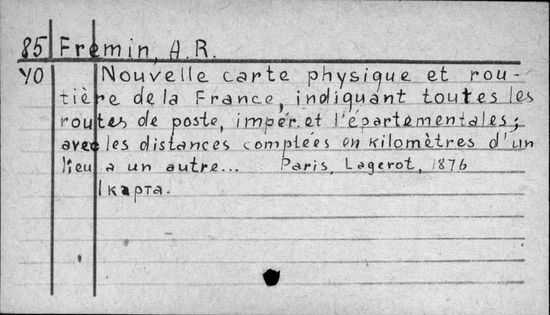 85 Fremin, A.R.
YO Nouvelle carte physique et rou-
tière de la France, indiquant toutes les
routes de poste, impér. et l'épartementales;
avec les distances comptées en kilomètres d'un
lieu a un autre... Paris, Lagerot, 1876
1 карта.